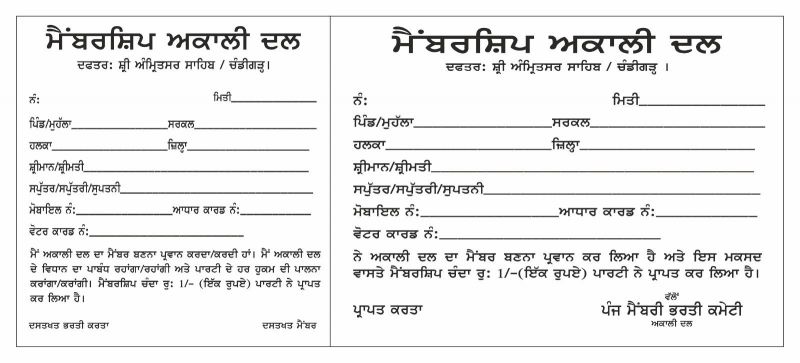 ਮੈਂਬਰਸ਼ਿਪ ਅਕਾਲੀ ਦਲ
ਦਫਤਰ: ਸ਼੍ਰੀ ਅੰਮ੍ਰਿਤਸਰ ਸਾਹਿਬ / ਚੰਡੀਗੜ੍ਹ।
ਨੰ: ਮਿਤੀ______________
ਪਿੰਡ/ਮੁਹੱਲਾ________________ਸਰਕਲ____________________
ਹਲਕਾ________________ਜ਼ਿਲ੍ਹਾ____________________
ਸ਼੍ਰੀਮਾਨ/ਸ਼੍ਰੀਮਤੀ______________________________________
ਸਪੁੱਤਰ/ਸਪੁੱਤਰੀ/ਸੁਪਤਨੀ________________________________
ਮੋਬਾਇਲ ਨੰ:________________ਆਧਾਰ ਕਾਰਡ ਨੰ:____________
ਵੋਟਰ ਕਾਰਡ ਨੰ:__________________________
ਮੈਂ ਅਕਾਲੀ ਦਲ ਦਾ ਮੈਂਬਰ ਬਣਨਾ ਪ੍ਰਵਾਨ ਕਰਦਾ/ਕਰਦੀ ਹਾਂ। ਮੈਂ ਅਕਾਲੀ ਦਲ
ਦੇ ਵਿਧਾਨ ਦਾ ਪਾਬੰਧ ਰਹਾਂਗਾ/ਰਹਾਂਗੀ ਅਤੇ ਪਾਰਟੀ ਦੇ ਹਰ ਹੁਕਮ ਦੀ ਪਾਲਨਾ
ਕਰਾਂਗਾ/ਕਰਾਂਗੀ। ਮੈਂਬਰਸ਼ਿਪ ਚੰਦਾ ਰੁ: 1/-(ਇੱਕ ਰੁਪਏ) ਪਾਰਟੀ ਨੇ ਪ੍ਰਾਪਤ
ਕਰ ਲਿਆ ਹੈ।
ਦਸਤਖਤ ਭਰਤੀ ਕਰਤਾ ਦਸਤਖਤ ਮੈਂਬਰ
ਮੈਂਬਰਸ਼ਿਪ ਅਕਾਲੀ ਦਲ
ਦਫਤਰ: ਸ਼੍ਰੀ ਅੰਮ੍ਰਿਤਸਰ ਸਾਹਿਬ / ਚੰਡੀਗੜ੍ਹ ।
ਨੰ: ਮਿਤੀ________________
ਪਿੰਡ/ਮੁਹੱਲਾ__________________ਸਰਕਲ______________________
ਹਲਕਾ__________________ਜ਼ਿਲ੍ਹਾ______________________
ਸ਼੍ਰੀਮਾਨ/ਸ਼੍ਰੀਮਤੀ__________________________________________
ਸਪੁੱਤਰ/ਸਪੁੱਤਰੀ/ਸੁਪਤਨੀ___________________________________
ਮੋਬਾਇਲ ਨੰ:__________________ਆਧਾਰ ਕਾਰਡ ਨੰ:_____________
ਵੋਟਰ ਕਾਰਡ ਨੰ:____________________________
ਨੇ ਅਕਾਲੀ ਦਲ ਦਾ ਮੈਂਬਰ ਬਣਨਾ ਪ੍ਰਵਾਨ ਕਰ ਲਿਆ ਹੈ ਅਤੇ ਇਸ ਮਕਸਦ
ਵਾਸਤੇ ਮੈਂਬਰਸ਼ਿਪ ਚੰਦਾ ਰੁ: 1/-(ਇੱਕ ਰੁਪਏ) ਪਾਰਟੀ ਨੇ ਪ੍ਰਾਪਤ ਕਰ ਲਿਆ ਹੈ।
ਵੱਲੋਂ
ਪ੍ਰਾਪਤ ਕਰਤਾ ਪੰਜ ਮੈਂਬਰੀ ਭਰਤੀ ਕਮੇਟੀ
ਅਕਾਲੀ ਦਲ